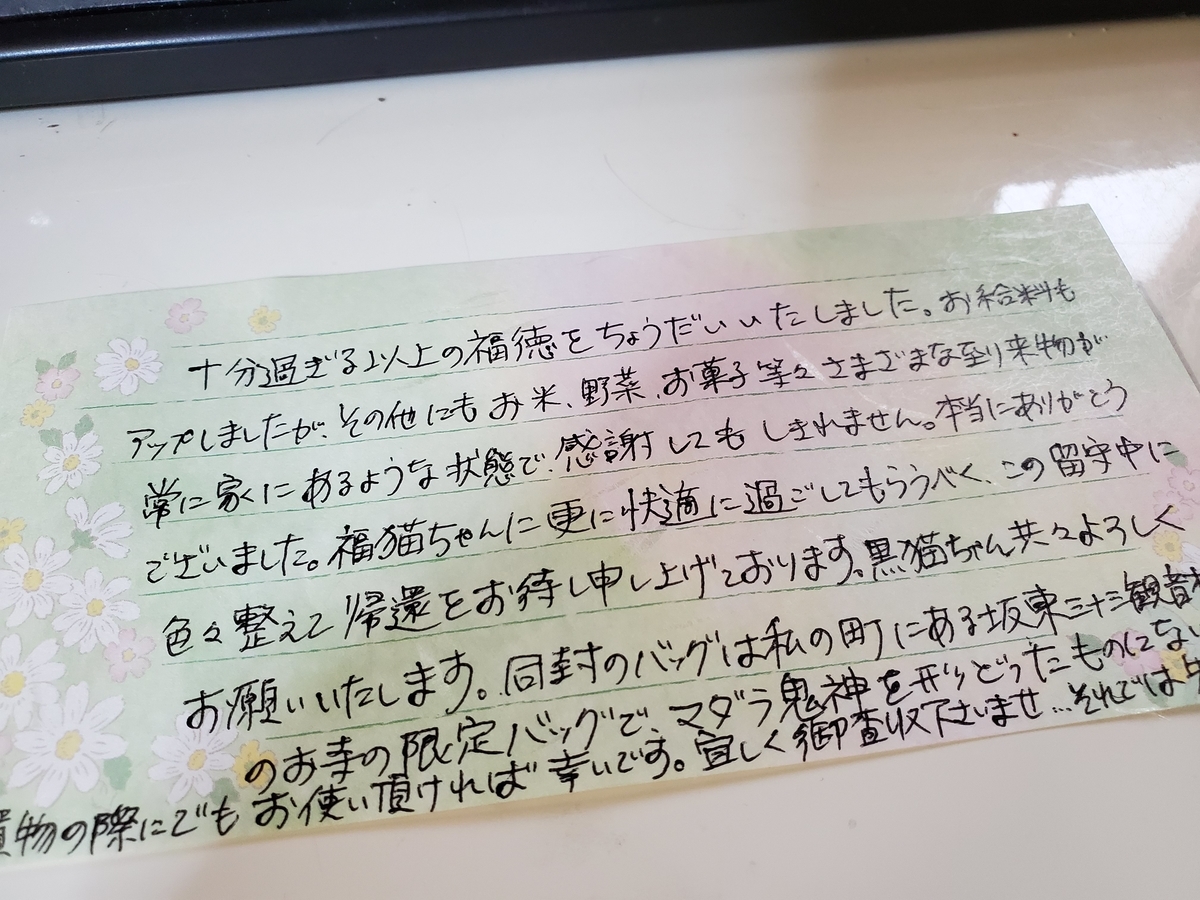 十分過ぎる以上の福徳をちょうだいいたしました。お給料も
アップしましたが、その他にもお米、野菜、お菓子等々さまざまな至り来物が
常に家にあるような状態で、感謝してもしきれません。本当にありがとう
ございました。福猫ちゃんに更に快適に過ごしてもらうべく、この留守中に
色々整えて帰還をお待し申し上げております。黒猫ちゃん共々よろしく
お願いいたします。同封のバッグは私の町にある坂東三十三観音
のお寺の限定バッグで、マダラ鬼神を形どったものにな
物の際にでもお使い頂ければ幸いです。宜しく御査収下さいませ…それでは